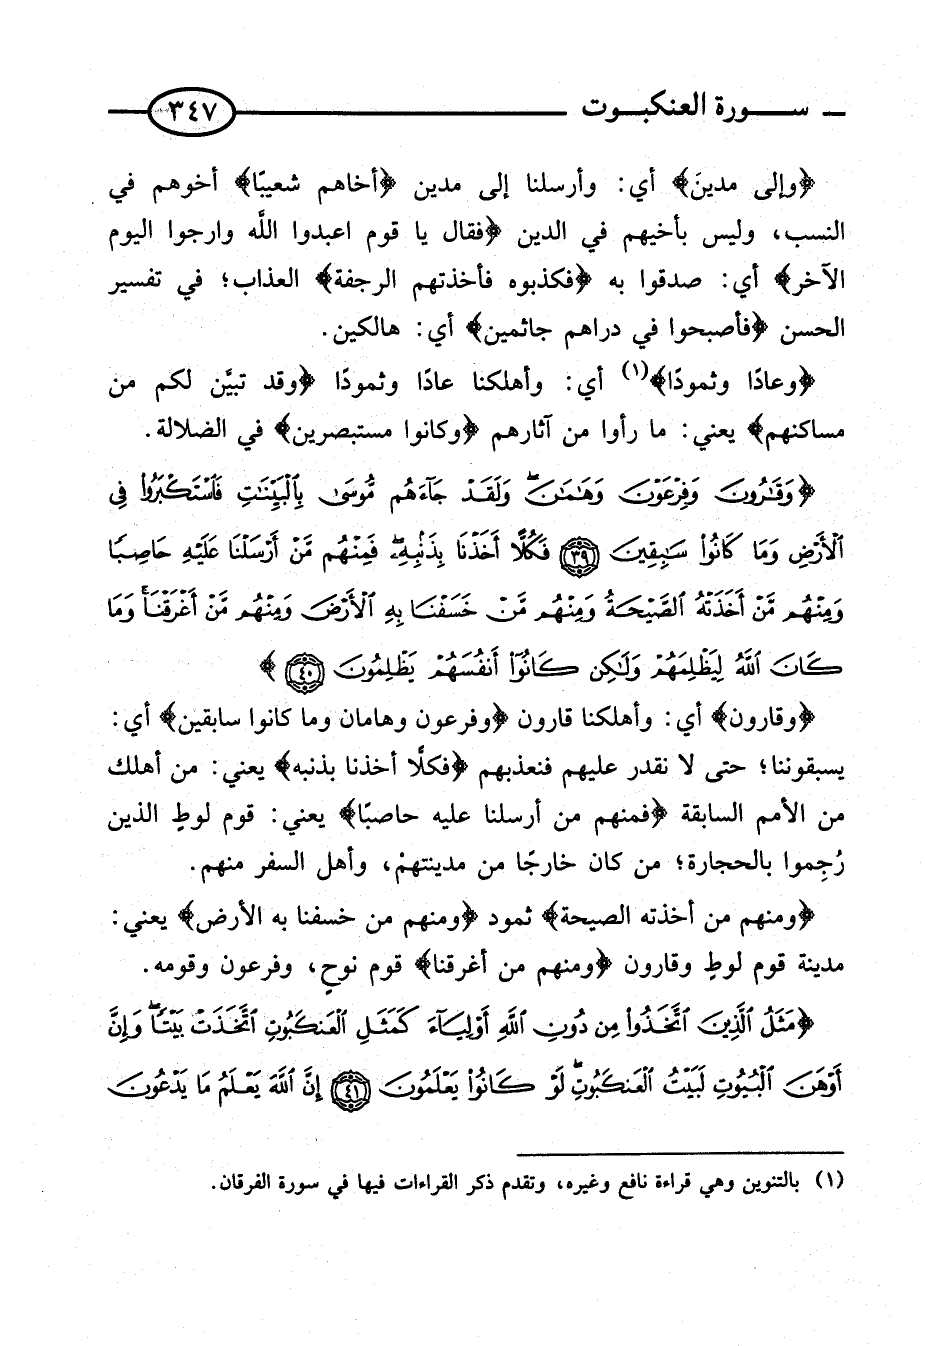 سورة العنكبوت ٣٤٧
﴿وإلى مدينَ﴾ أي: وأرسلنا إلى مدين ﴿أخاهم شعيبًا﴾ أخوهم في
النسب، وليس بأخيهم في الدين ﴿فقال يا قوم اعبدوا اللَّه وارجوا اليوم
الآخر﴾ أي: صدقوا به ﴿فكذبوه فأخذتهم الرجفة﴾ العذاب؛ في تفسير
الحسن ﴿فأصبحوا في دراهم جاثمين﴾ أي: هالكين.
﴿وعادًا وثمودًا﴾(١) أي: وأهلكنا عادًا وثمودًا ﴿وقد تبيَّن لكم من
مساكنهم﴾ يعني: ما رأوا من آثارهم ﴿وكانوا مستبصرين﴾ في الضلالة.
﴿وَقَٰرُونَ وَفِرْعَوْنَ وَهَٰمَٰنَۖ وَلَقَدْ جَآءَهُم مُّوسَىٰ بِٱلْبَيِّنَٰتِ فَٱسْتَكْبَرُوا۟ فِى
ٱلْأَرْضِ وَمَا كَانُوا۟ سَٰبِقِينَ ٣٩ فَكُلًّا أَخَذْنَا بِذَنۢبِهِۦۖ فَمِنْهُم مَّنْ أَرْسَلْنَا عَلَيْهِ حَاصِبًا
وَمِنْهُم مَّنْ أَخَذَتْهُ ٱلصَّيْحَةُ وَمِنْهُم مَّنْ خَسَفْنَا بِهِ ٱلْأَرْضَ وَمِنْهُم مَّنْ أَغْرَقْنَاۚ وَمَا
كَانَ ٱللَّهُ لِيَظْلِمَهُمْ وَلَٰكِن كَانُوٓا۟ أَنفُسَهُمْ يَظْلِمُونَ ٤٠﴾
﴿وقارون﴾ أي: وأهلكنا قارون ﴿وفرعون وهامان وما كانوا سابقين﴾ أي:
يسبقوننا؛ حتى لا نقدر عليهم فنعذبهم ﴿فكلًّا أخذنا بذنبه﴾ يعني: من أهلك
من الأمم السابقة ﴿فمنهم من أرسلنا عليه حاصبًا﴾ يعني: قوم لوطٍ الذين
رُجِموا بالحجارة؛ من كان خارجًا من مدينتهمْ، وأهل السفر منهم.
﴿ومنهم من أخذته الصيحة﴾ ثمود ﴿ومنهم من خسفنا به الأرض﴾ يعني:
مدينة قوم لوطٍ وقارون ﴿ومنهم من أغرقنا﴾ قوم نوحٍ، وفرعون وقومه.
﴿مَثَلُ ٱلَّذِينَ ٱتَّخَذُوا۟ مِن دُونِ ٱللَّهِ أَوْلِيَآءَ كَمَثَلِ ٱلْعَنكَبُوتِ ٱتَّخَذَتْ بَيْتًاۖ وَإِنَّ
أَوْهَنَ ٱلْبُيُوتِ لَبَيْتُ ٱلْعَنكَبُوتِۖ لَوْ كَانُوا۟ يَعْلَمُونَ ٤١ إِنَّ ٱللَّهَ يَعْلَمُ مَا يَدْعُونَ
(١) بالتنوين وهي قراءة نافع وغيره، وتقدم ذكر القراءات فيها في سورة الفرقان.